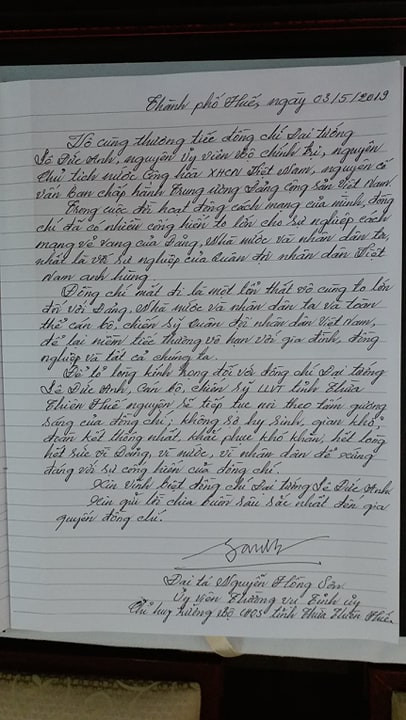 Thành phố Huế, ngày 03/5/2019
Vô cùng thương tiếc đồng chí Đại tướng
Lê Đức Anh, nguyên Ủy viên Bộ chính trị, nguyên
Chủ tịch nước Cộng hòa XHCN Việt Nam, nguyên cố
vấn Ban chấp hành Trung ương Đảng cộng sản Việt Nam.
Trong cuộc đời hoạt động cách mạng của mình, đồng
chí đã có nhiều cống hiến to lớn cho sự nghiệp cách
mạng vẻ vang của Đảng, Nhà nước và nhân dân ta,
nhất là với sự nghiệp của Quân đội nhân dân Việt
Nam anh hùng.
Đồng chí mất đi là một tổn thất vô cùng to lớn
đối với Đảng, Nhà nước và nhân dân ta và toàn
thể cán bộ, chiến sỹ Quân đội nhân dân Việt Nam,
để lại niềm tiếc thương vô hạn với gia đình, đồng
nghiệp và tất cả chúng ta.
Để tỏ lòng kính trọng đối với đồng chí Đại tướng
Lê Đức Anh, Cán bộ, chiến sỹ LLVT tỉnh Thừa
Thiên Huế nguyện sẽ tiếp tục noi theo tấm gương
sáng của đồng chí; không sợ hy sinh, gian khổ,
đoàn kết thống nhất, khắc phục khó khăn, hết lòng
hết sức vì Đảng, vì nước, vì nhân dân để xứng
đáng với sự cống hiến của đồng chí.
Xin vĩnh biệt đồng chí Đại tướng Lê Đức Anh
Xin gửi lời chia buồn sâu sắc nhất đến gia
quyến đồng chí.
Đại tá Nguyễn Hồng Sơn
Ủy viên Thường vụ Tỉnh ủy
Chỉ huy trưởng Bộ CHQS tỉnh Thừa Thiên Huế